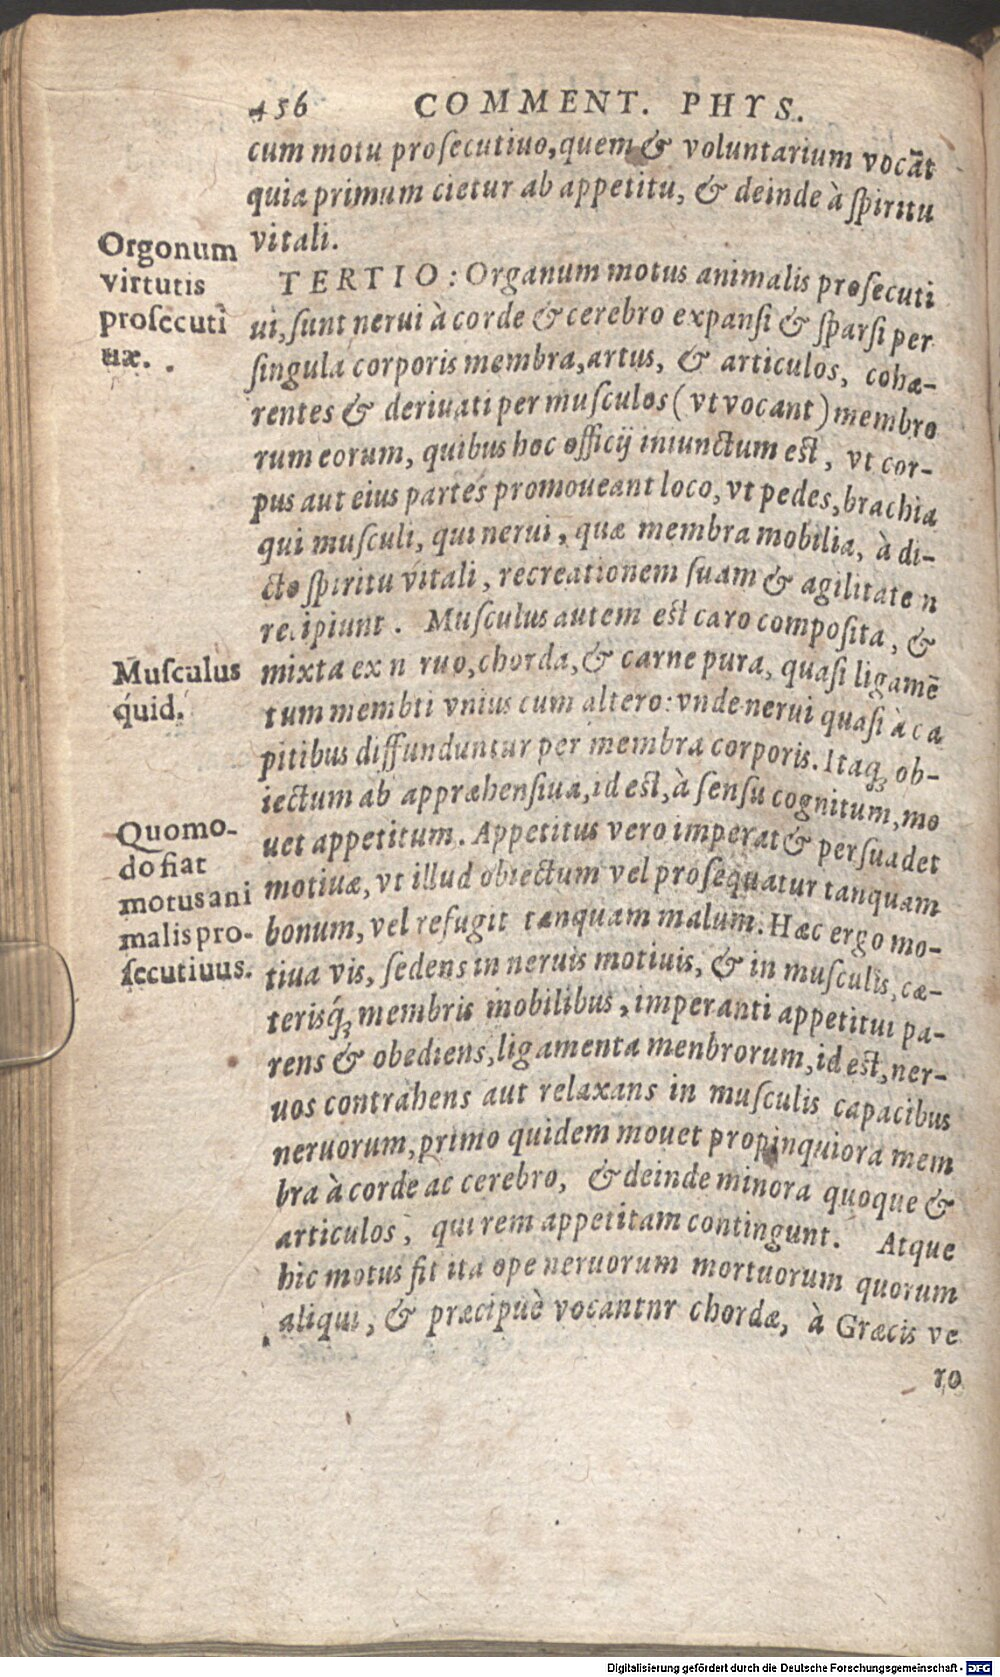 456 COMMENT. PHYS.
cum motu prosecutiuo, quem & voluntarium vocāt
quia primum cietur ab appetitu, & deinde à spiritu
vitali.
Orgonum
virtutis
prosecuti
uæ.
TERTIO: Organum motus animalis prosecuti
ui, sunt nerui à corde & cerebro expansi & sparsi per
singula corporis membra, artus, & articulos, cohæ-
rentes & deriuati per musculos (vt vocant) membro
rum eorum, quibus hoc officij iniunctum est, vt cor-
pus aut eius partes promoueant loco, vt pedes, brachia
qui musculi, qui nerui, quæ membra mobilia, à di-
cto spiritu vitali, recreationem suam & agilitate n
re ipiunt. Musculus autem est caro composita, &
Musculus
quid.
mixta ex n ruo, chorda, & carne pura, quasi ligamē
tum membti vnius cum altero: vnde nerui quasi à ca
pitibus diffunduntur per membra corporis. Itaq; ob-
iectum ab appræhensiua, id est, à sensu cognitum, mo
Quomo-
do fiat
motus ani
malis pro-
secutiuus.
uet appetitum. Appetitus vero imperat & persuadet
motiuæ, vt illud obiectum vel prosequatur tanquam
bonum, vel refugit tanquam malum. Hæc ergo mo-
tiua vis, sedens in neruis motiuis, & in musculis, cæ-
terisq́; membris mobilibus, imperanti appetitui pa-
rens & obediens, ligamenta menbrorum, id est, ner-
uos contrahens aut relaxans in musculis capacibus
neruorum, primo quidem mouet propinquiora mem
bra à corde ac cerebro, & deinde minora quoque &
articulos, qui rem appetitam contingunt. Atque
hic motus fit ita ope neruorum mortuorum quorum
aliqui, & præcipuè vocantnr chordæ, à Græcis ve
ro
Digitalisierung gefördert durch die Deutsche Forschungsgemeinschaft - DFG